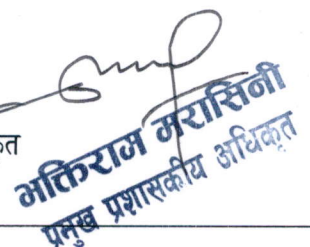 कृत
भक्तिराज मरासिनी
प्रमुख प्रशासकीय अधिकृत